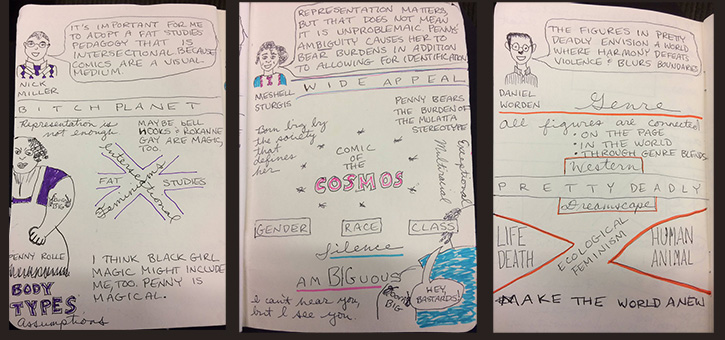 IT'S IMPORTANT FOR ME
TO ADOPT A FAT STUDIES
PEDAGOGY THAT IS
INTERSECTIONAL BECAUSE
COMICS ARE A VISUAL
MEDIUM.
NICK
MILLER
BITCH PLANET
Representation is
not enough
MAYBE BELL
HOOKS & ROXANE
GAY ARE MAGIC,
TOO
Intersectional
FAT STUDIES
Feminisms
BORN
BIG
PENNY ROLLE
BODY
TYPES
Assumptions
I THINK BLACK GIRL
MAGIC MIGHT INCLUDE
ME, TOO. PENNY IS
MAGICAL.
REPRESENTATION MATTERS,
BUT THAT DOES NOT MEAN
IT IS UNPROBLEMAIC. PENNYS
AMBIGUITY CAUSES HER TO
BEAR BURDENS IN ADDITION
TO ALLOWING FOR IDENTIFICATION
MESHELL
STURGIS
WIDE APPEAL
Born big by
the society
that
defines
her
PENNY BEARS
THE BURDEN OF
THE MULATTA
STEREOTYPE
Exceptional
Multiracial
COMIC
OF THE
COSMOS
GENDER
RACE
CLASS
Silence
AMBIGUOUS
I can't hear you,
but I see you.
BORN
BIG
HEY,
BASTARDS!
THE FIGURES IN PRETTY
DEADLY ENVISION A WORLD
WHERE HARMONY DEFEATS
VIOLENCE & BLURS BOUNDARIES
DANIEL
WORDEN
Genre
All figures are connected
• ON THE PAGE
• IN THE WORLD
• THROUGH GENRE BLENDS
Western
PRETTY DEADLY
Dreamscape
LIFE
DEATH
ECOLOGICAL
FEMINISM
HUMAN
ANIMAL
MAKE THE WORLD ANEW